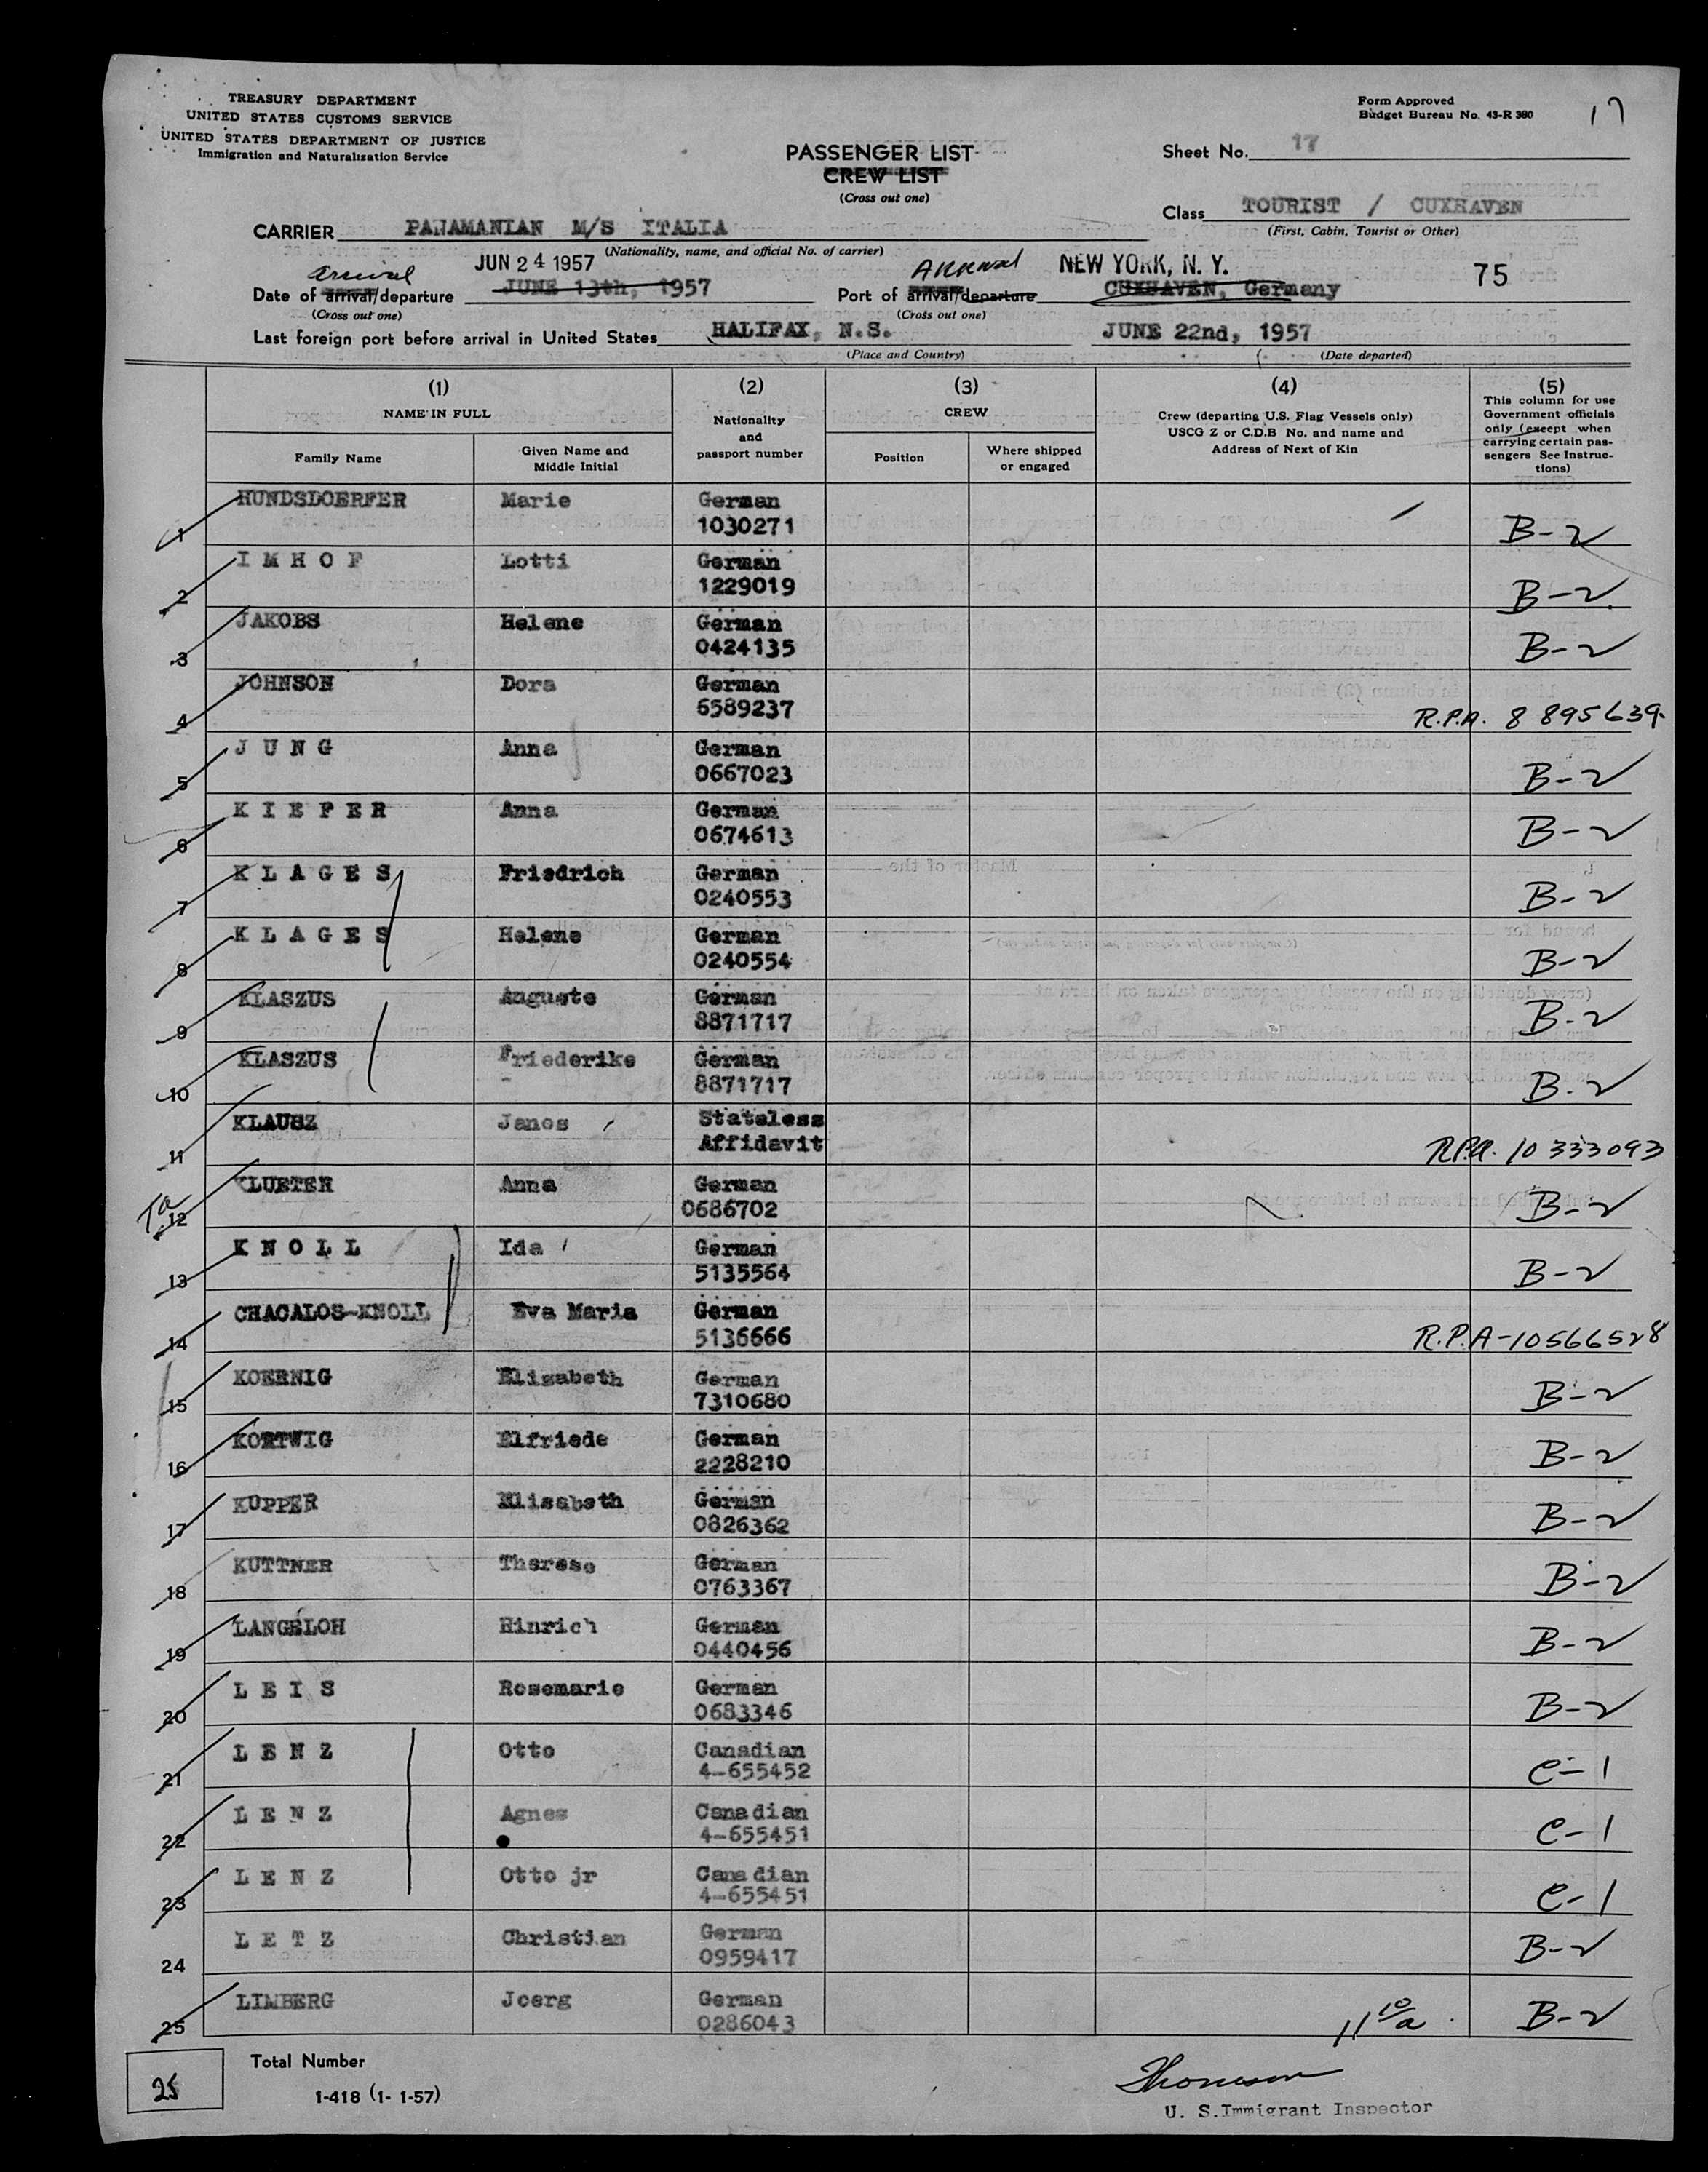 TREASURY DEPARTMENT
UNITED STATES CUSTOMS SERVICE
UNITED STATES DEPARTMENT OF JUSTICE
Immigration and Naturalization Service
Form Approved
Budget Bureau No. 43-R 380
17
PASSENGER LIST
CREW LIST
(Cross out one)
Sheet No. 17
Class TOURIST / CUXHAVEN
(First, Cabin, Tourist or Other)
CARRIER PANAMANIAN M/S ITALIA
(Nationality, name, and official No. of carrier)
arrival JUN 24 1957 Arrival NEW YORK, N. Y. 75
Date of arrival/departure JUNE 13th, 1957 Port of arrival/departure CUXHAVEN, Germany
(Cross out one) (Cross out one)
Last foreign port before arrival in United States HALIFAX, N.S. JUNE 22nd, 1957
(Place and Country) (Date departed)
(1) (2) (3) (4) (5)
NAME IN FULL
Family Name
Given Name and Middle Initial
Nationality and passport number
CREW
Position
Where shipped or engaged
Crew (departing U.S. Flag Vessels only)
USCG Z or C.D.B No. and name and
Address of Next of Kin
This column for use
Government officials
only (except when
carrying certain pas-
sengers See Instruc-
tions)
1 HUNDSDOERFER Marie German 1030271 B-2
2 IMHOF Lotti German 1229019 B-2
3 JAKOBS Helene German 0424135 B-2
4 JOHNSON Dora German 6589237 R.P.A. 8 895639
5 JUNG Anna German 0667023 B-2
6 KIEFER Anna German 0674613 B-2
7 KLAGES Friedrich German 0240553 B-2
8 KLAGES Helene German 0240554 B-2
9 KLASZUS Auguste German 8871717 B-2
10 KLASZUS Friederike German 8871717 B-2
11 KLAUSZ Janos Stateless Affidavit R.P.A. 10 333093
Ta
12 KLUETER Anna German 0686702 B-2
13 KNOLL Ida German 5135564 B-2
14 CHACALOS-KNOLL Eva Maria German 5136666 R.P.A-10566528
15 KOERNIG Elisabeth German 7310680 B-2
16 KORTWIG Elfriede German 2228210 B-2
17 KUPPER Elisabeth German 0826362 B-2
18 KUTTNER Therese German 0763367 B-2
19 LANGELOH Hinrich German 0440456 B-2
20 LEIS Rosemarie German 0683346 B-2
21 LENZ Otto Canadian 4-655452 C-1
22 LENZ Agnes Canadian 4-655451 C-1
23 LENZ Otto jr Canadian 4-655451 C-1
24 LETZ Christian German 0959417 B-2
25 LIMBERG Joerg German 0286043 11 10/a B-2
25
Total Number
1-418 (1-1-57)
Thomson
U. S. Immigrant Inspector